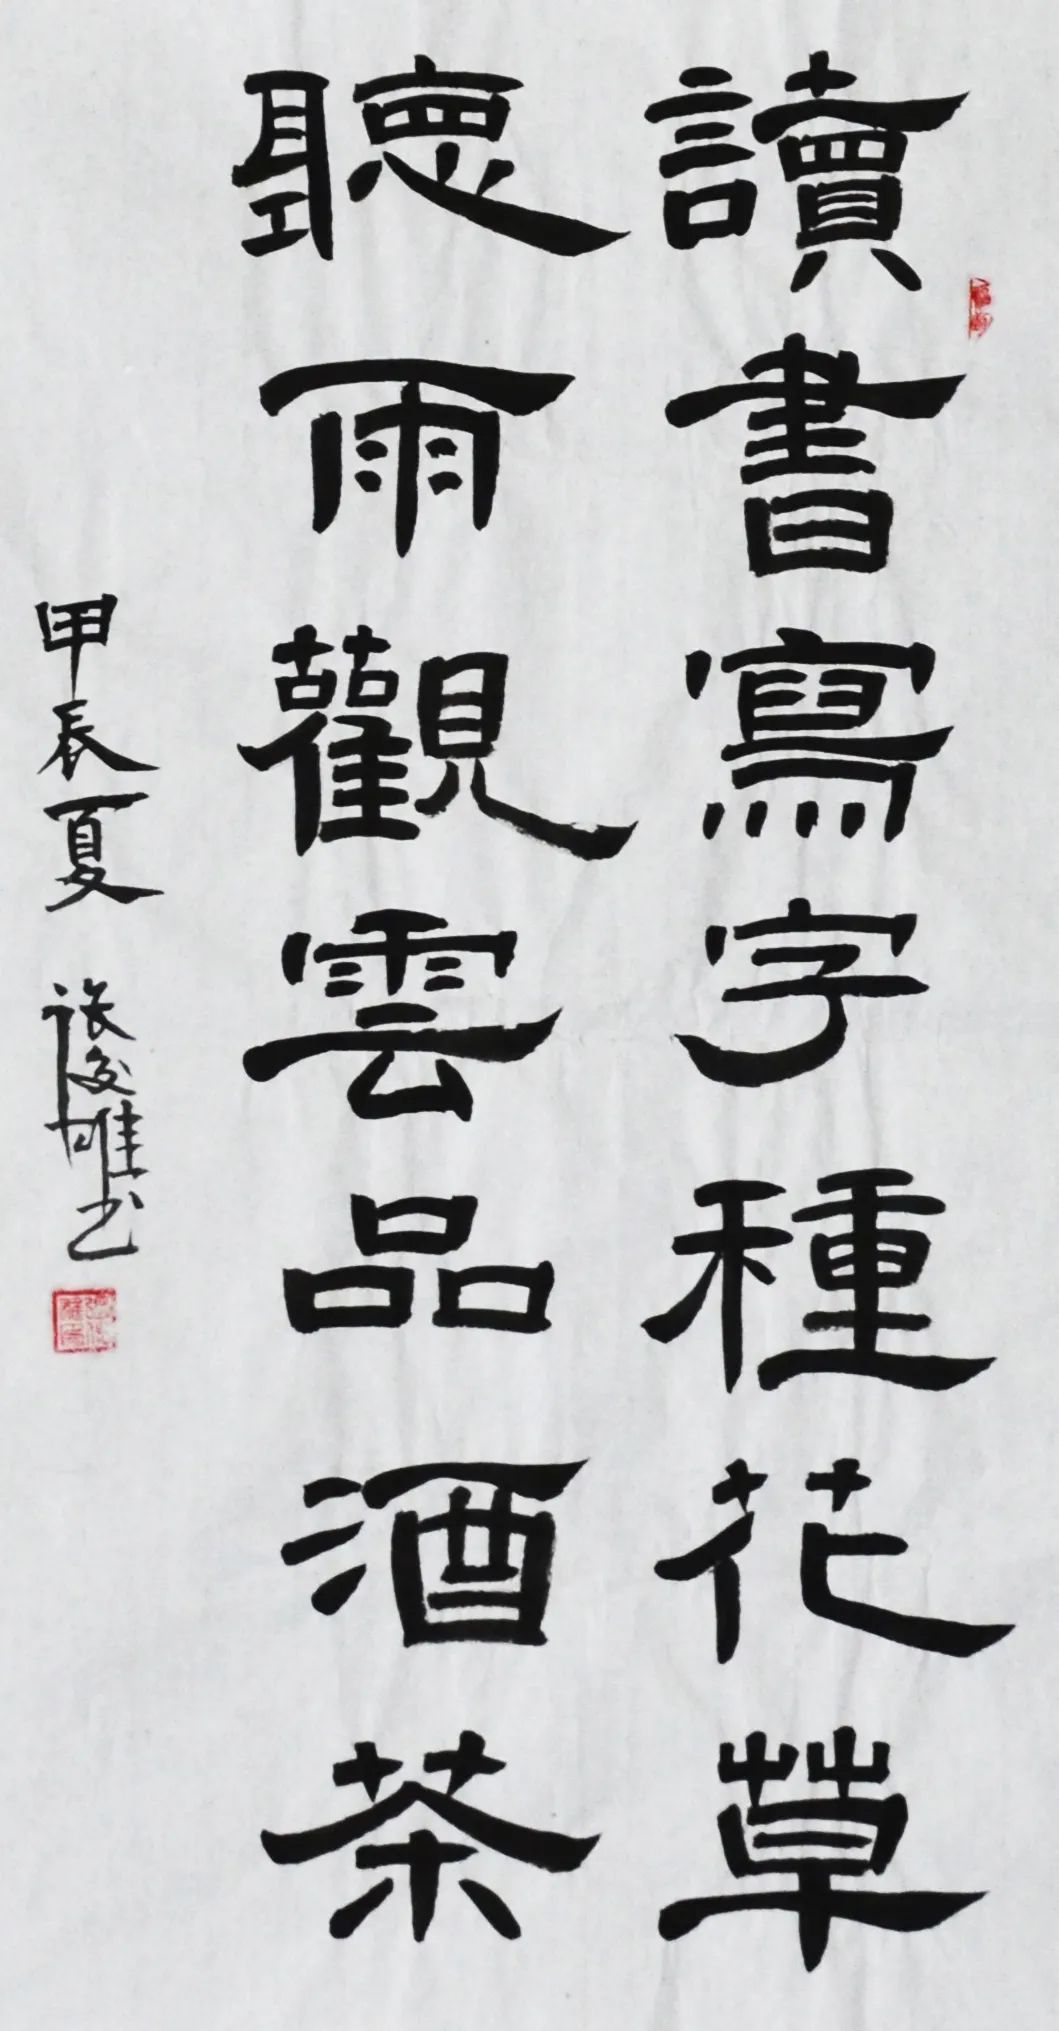 讀書寫字種花草
聽雨觀雲品酒茶
甲辰夏 張俊雄书